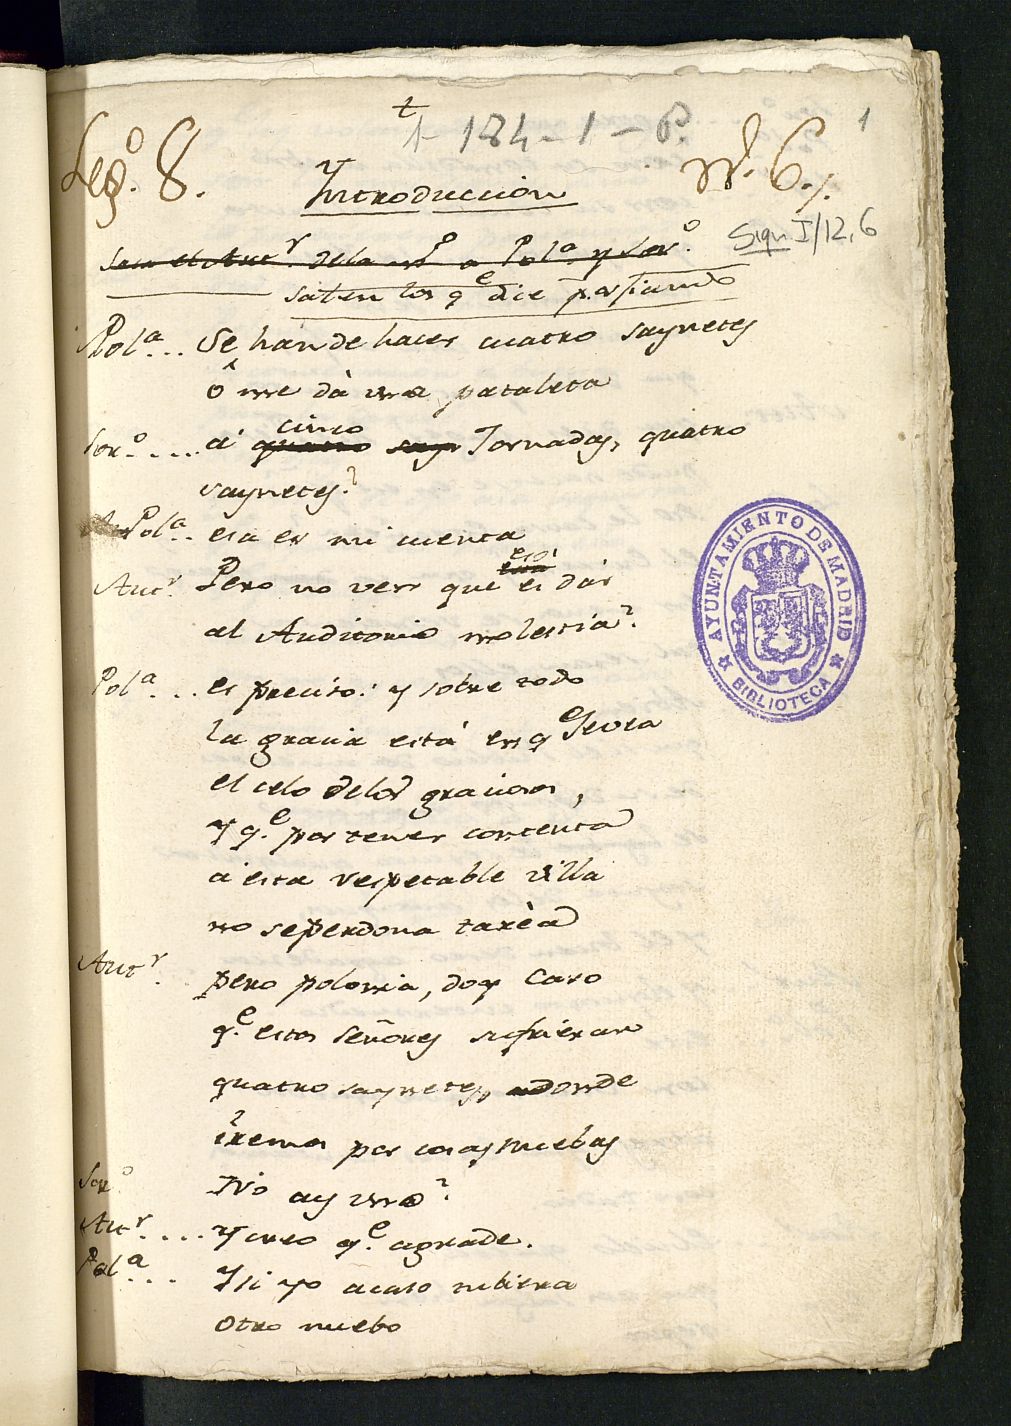 t
1-184-1-6.
1
Leg.º 8.
Nº. 6.
Introduccion
Sign I/12,6
Sale el Autr. de la mº a Polª y Sorº.
salen los q.e dice porfiando
Polª... Se han de hacer cuatro saynetes
ô me dà una pataleta
Sorº.... a' cinco quatro say Jornadas, quatro
saynetes?
Polª.. esa es mi cuenta
Autr. Pero no veis que eso esto es dàr
al Auditorio molestia?
Polª... es preciso: y sobre todo
la gracia està en q.e se vea
el celo de los graciosos,
y q.e por tener contenta
a esta respetable villa
no se perdona tarèa
Autr. pero polonia, doy caso
q.e estos señores sufrieran
quatro saynetes, adonde
iremos por cosas nuebas
Sorº No ay uno?
Autr.... Y creo q.e agrade.
Polª... Y si yo acaso tubiera
otro nuebo
AYUNTAMIENTO DE MADRID
BIBLIOTECA